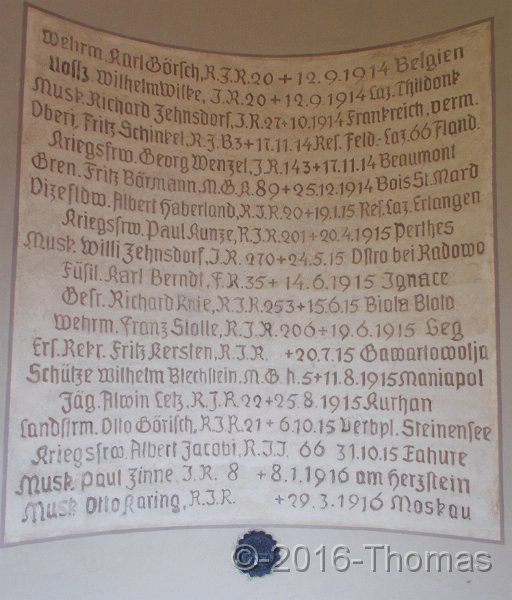 Wehrm. Karl Görsch, R.J.R. 20 + 12.9.1914 Belgien
Uoffz Wilhelm Wilke, J.R. 20 + 12.9.1914 Laz. Thildonk
Musk. Richard Zehnsdorf, J.R. 27 + 10.1914 Frankreich, verm.
Oberj. Fritz Schinkel, R.J.B3 + 17.11.14 Res. Feld-Laz. 66 Fland.
Kriegsfrw. Georg Wenzel, J.R. 143 + 17.11.14 Beaumont
Gren. Fritz Börmann, M.G.K. 89 + 25.12.1914 Bois St. Mard
Vizefldw. Albert Haberland, R.J.R. 20 + 19.1.15 Res. Laz. Erlangen
Kriegsfrw. Paul Kunze, R.J.R. 201 + 20.4.1915 Perthes
Musk. Willi Zehnsdorf, J.R. 270 + 24.5.15 Ostro bei Radowo
Füsil. Karl Berndt, F.R. 35 + 14.6.1915 Ignace
Gefr. Richard Knie, R.J.R. 253 + 15.6.15 Biola Bloto
Wehrm. Franz Stolle, R.J.R. 206 + 19.6.1915 Geg
Ers. Rekr. Fritz Kersten, R.J.R. + 20.7.15 Gawartowolja
Schütze Wilhelm Blechstein, M.G. h. 5 + 11.8.1915 Maniapol
Jäg. Alwin Letz, R.J.R 22 + 25.8.1915 Kurhan
Landstrm. Otto Görisch, R.J.R. 21 + 6.10.15 Verbpl. Steinensee
Kriegsfrw. Albert Jacobi, R.J.J. 66 31.10.15 Tahure
Musk. Paul Zinne, J.R. 8 + 8.1.1916 am Herzstein
Musk. Otto Karing, R.J.R. + 29.3.1916 Moskau
©-2016-Thomas